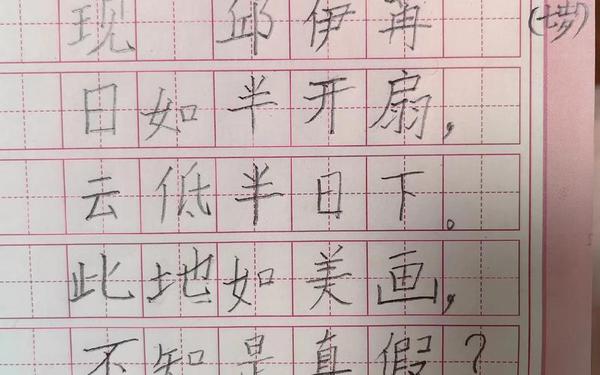 现 邱伊再 (七岁)
日如半开扇,
云低半日下。
此地如美画,
不知是真假?